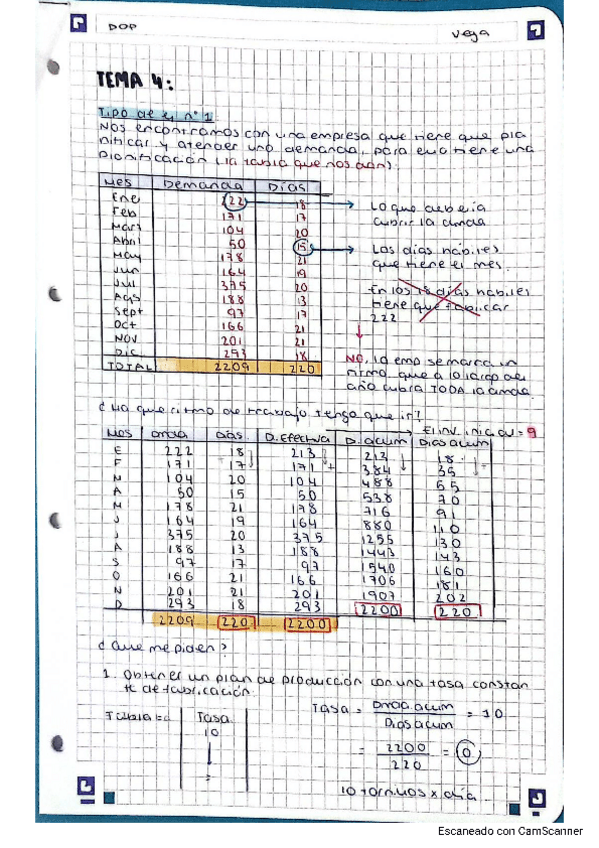 DOP
Vega
TEMA 4:
Tipo de ej n°1
Nos encontramos con una empresa que tiene que pla
nificar y atender una demanda, para ello tiene una
planificación (la tabla que nos dan).
Mes Demanda Días
Ene 222 18
Feb 171 17
Mart 104 20
Abril 50 15
May 178 21
Jun 164 19
Jul 375 20
Ags 188 13
Sept 97 17
Oct 166 21
Nov 201 21
Dic 293 18
TOTAL 2209 220
Lo que debería
cubrir la dmda
Los días hábiles
que tiene el mes.
En los 18 días hábiles
tiene que fabricar
222
NO, la emp se marca un
ritmo, que a lo largo del
año cubra TODA la dmda.
¿Ha que ritmo de trabajo tengo que ir?
El inv. inicial = 9
Mes Dmda Días D. Efectiva D. acum Días acum
E 222 18 213 213 18
F 171 17 171 384 35
M 104 20 104 488 55
A 50 15 50 538 70
M 178 21 178 716 91
J 164 19 164 880 110
J 375 20 375 1255 130
A 188 13 188 1443 143
S 97 17 97 1540 160
O 166 21 166 1706 181
N 201 21 201 1907 202
D 293 18 293 2200 220
2209 220 2200
¿Que me piden?
1. Obtener un plan de producción con una tasa constan
te de fabricación.
Tasa
10
=
Tasa = Dmda acum / Días acum = 10
= 2200 / 220 = 10
10 tornillos x día
Escaneado con CamScanner